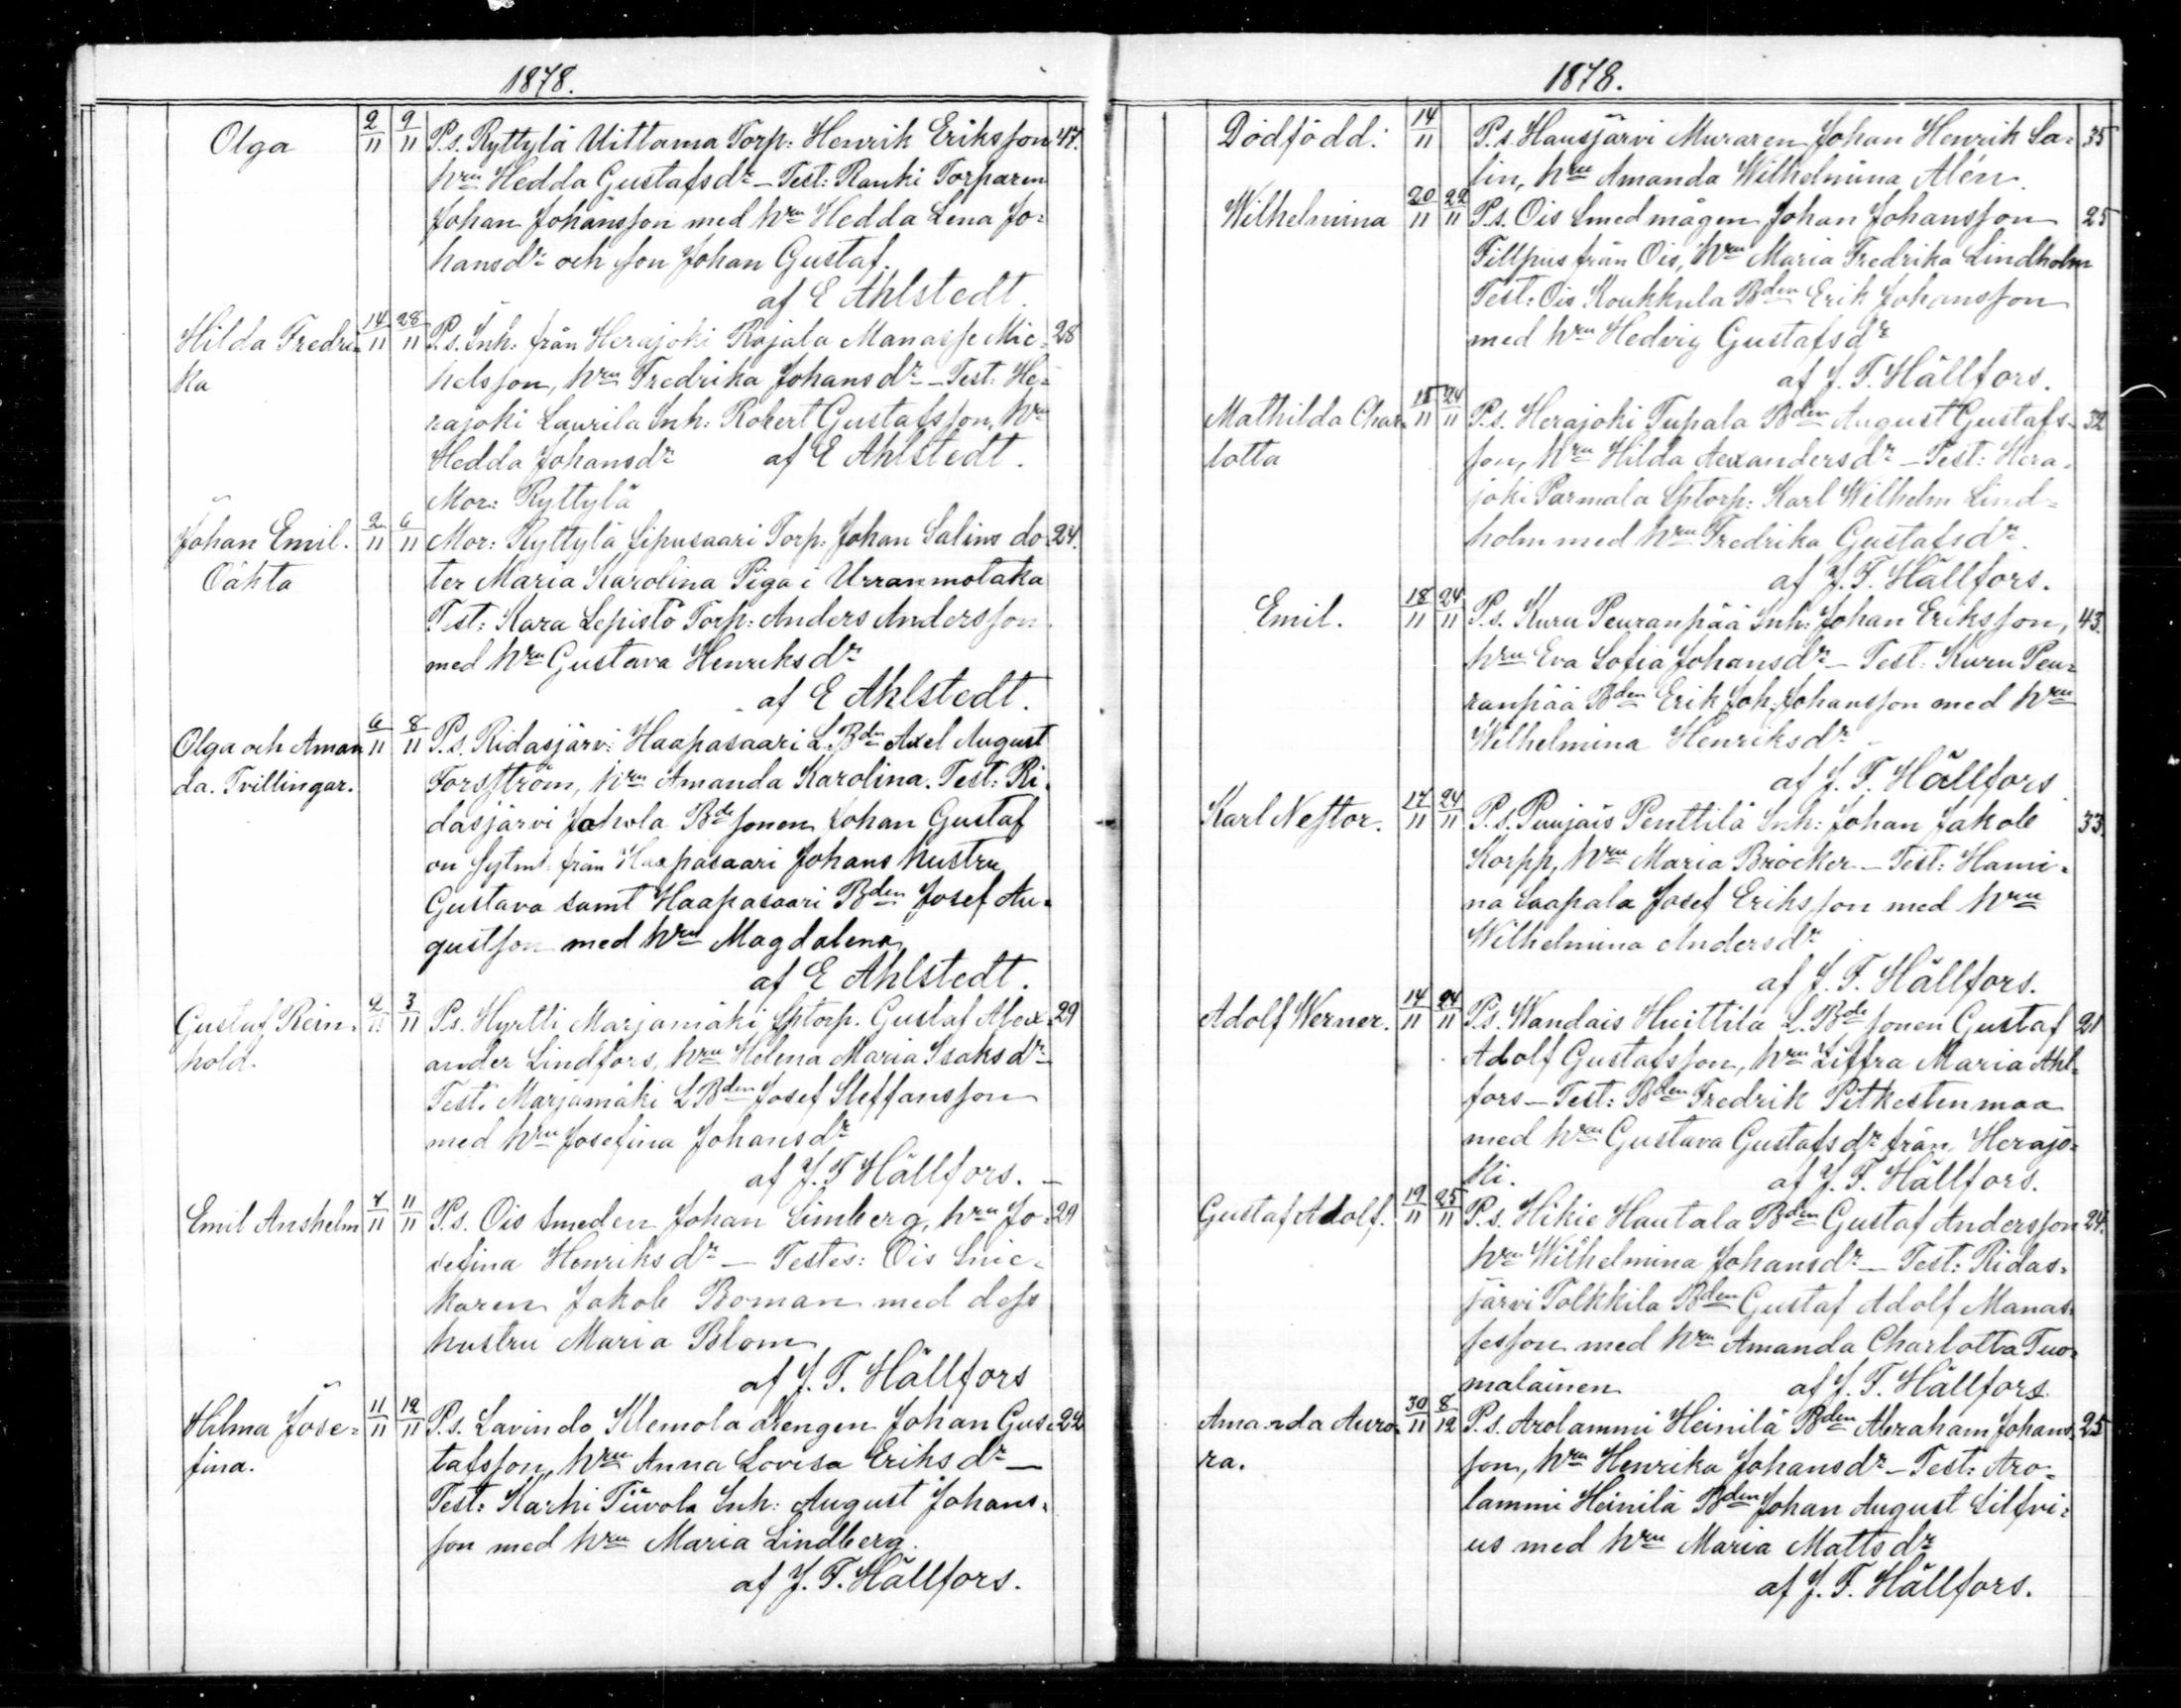 1878.
Olga 2/11 9/11 P.s. Ryttylä Uittama Torp: Henrik Eriksson 47.
hru Hedda Gustafsdr – Test: Ranki Torparen
Johan Johansson med hru Hedda Lena Jo-
hansdr och son Johan Gustaf.
af E Ahlstedt.
Hilda Fredri- 14/11 28/11 P.s. Inh: från Herajoki Rajala Manasse Mic- 28
ka helsson, hru Fredrika Johansdr – Test: He-
rajoki Laurila Inh: Robert Gustafsson, hru
Hedda Johansdr af E Ahlstedt.
Mor: Ryttylä
Johan Emil. 2/11 6/11 Mor: Ryttylä Sipusaari Torp: Johan Salins do- 24.
Oäkta ter Maria Karolina Piga i Urranmotaka
Test: Kara Lepistö Torp: Anders Andersson
med hru Gustava Henriksdr
af E Ahlstedt.
Olga och Aman 6/11 8/11 P.s. Ridasjärvi Haapasaari L.Bdn Axel August
da. Tvillingar. Forsström, hru Amanda Karolina. Test: Ri-
dasjärvi Jahola Bdesonen Johan Gustaf
ou Sytml: från Haapasaari Johans hustru
Gustava samt Haapasaari Bden Josef Au-
gustson med hru Magdalena
af E Ahlstedt.
Gustaf Rein- 2/11 3/11 P.s. Hyrtti Marjamäki Sptorp. Gustaf Alex- 29
hold. ander Lindfors, hru Helena Maria Isaksdr
Test. Marjamäki LBden Josef Steffansson
med hru Josefina Johansdr
af J. F. Hällfors. –
Emil Anshelm 7/11 11/11 P.s. Ois Smeden Johan Limberg, hru Jo- 29
sefina Henriksdr – Testes: Ois Snic-
karen Jakob Boman med dess
hustru Maria Blom
af J. F. Hällfors
Hilma Jose- 11/11 12/11 P.s. Lavindo Klemola drengen Johan Gus- 22
fina. tafsson, hru Anna Lovisa Eriksdr –
Test: Karhi Tiivola Inh: August Johans-
son med hru Maria Lindberg.
af J. F. Hällfors.
1878.
Dödfödd: 14/11 P.s. Hausjärvi Muraren Johan Henrik Sa- 35
lin, hru Amanda Wilhelmina Alén.
Wilhelmina 20/11 22/11 P.s. Ois Smedmågen Johan Johansson 25
Fillpus från Ois, hru Maria Fredrika Lindholm
Test: Ois Koukkula Bden Erik Johansson
med hru Hedvig Gustafsdr
af J. F. Hällfors.
Mathilda Char- 15/11 24/11 P.s. Herajoki Tupala Bden August Gustafs- 32
lotta son, hru Hilda Aexandersdr – Test: Hera-
joki Parmala Sptorp: Karl Wilhelm Lind-
holm med hru Fredrika Gustafsdr.
af J. F. Hällfors.
Emil. 18/11 24/11 P.s. Kuru Peuranpää Inh: Johan Eriksson, 43.
hru Eva Sofia Johansdr – Test: Kuru Peu-
ranpää Bden Erik Joh: Johansson med hru
Wilhelmina Henriksdr –
af J. F. Hällfors
Karl Nestor. 17/11 24/11 P.s. Puujais Penttilä Inh: Johan Jakob 33.
Korpp, hru Maria Bröcker – Test: Hami-
na Saapala Josef Eriksson med hru
Wilhelmina Andersdr
af J. F. Hällfors.
Adolf Werner. 14/11 24/11 P.s. Wandais Huittila L.Bdesonen Gustaf 21
Adolf Gustafsson, hru Siffra Maria Ahl-
fors – Test: Bden Fredrik Pitkestenmaa
med hru Gustava Gustafsdr från Herajo-
ki. af J. F. Hällfors.
Gustaf Adolf. 19/11 25/11 P.s. Hikie Hautala Bden Gustaf Andersson 24.
hru Wilhelmina Johansdr – Test: Ridas-
järvi Tolkkila Bden Gustaf Adolf Manas-
sesson med hru Amanda Charlotta Tuo-
malainen af J. F. Hällfors.
Amanda Auro- 30/11 8/12 P.s. Arolammi Heinilä Bden Abraham Johans- 25
ra. son, hru Henrika Johansdr – Test: Aro-
lammi Heinilä Bden Johan August Silfvi-
us med hru Maria Mattsdr
af J. F. Hällfors.